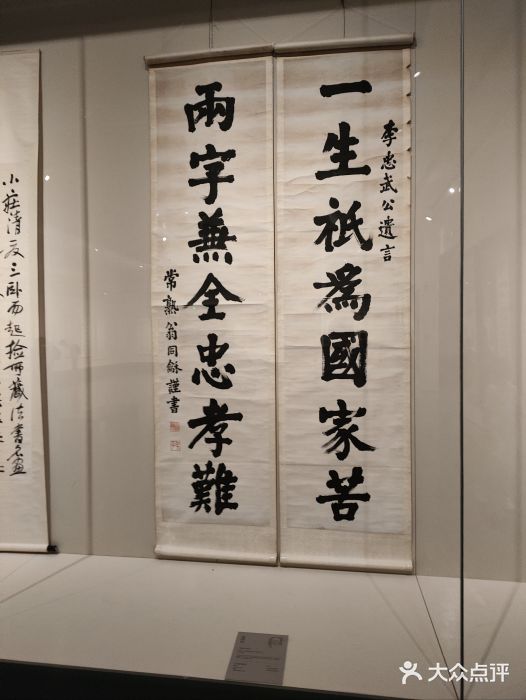 李忠武公遺言
一生祇為國家苦
兩字兼全忠孝難
常熟翁同龢謹書
小莊清夜三卧而起撿所藏法書名畫
大众点评